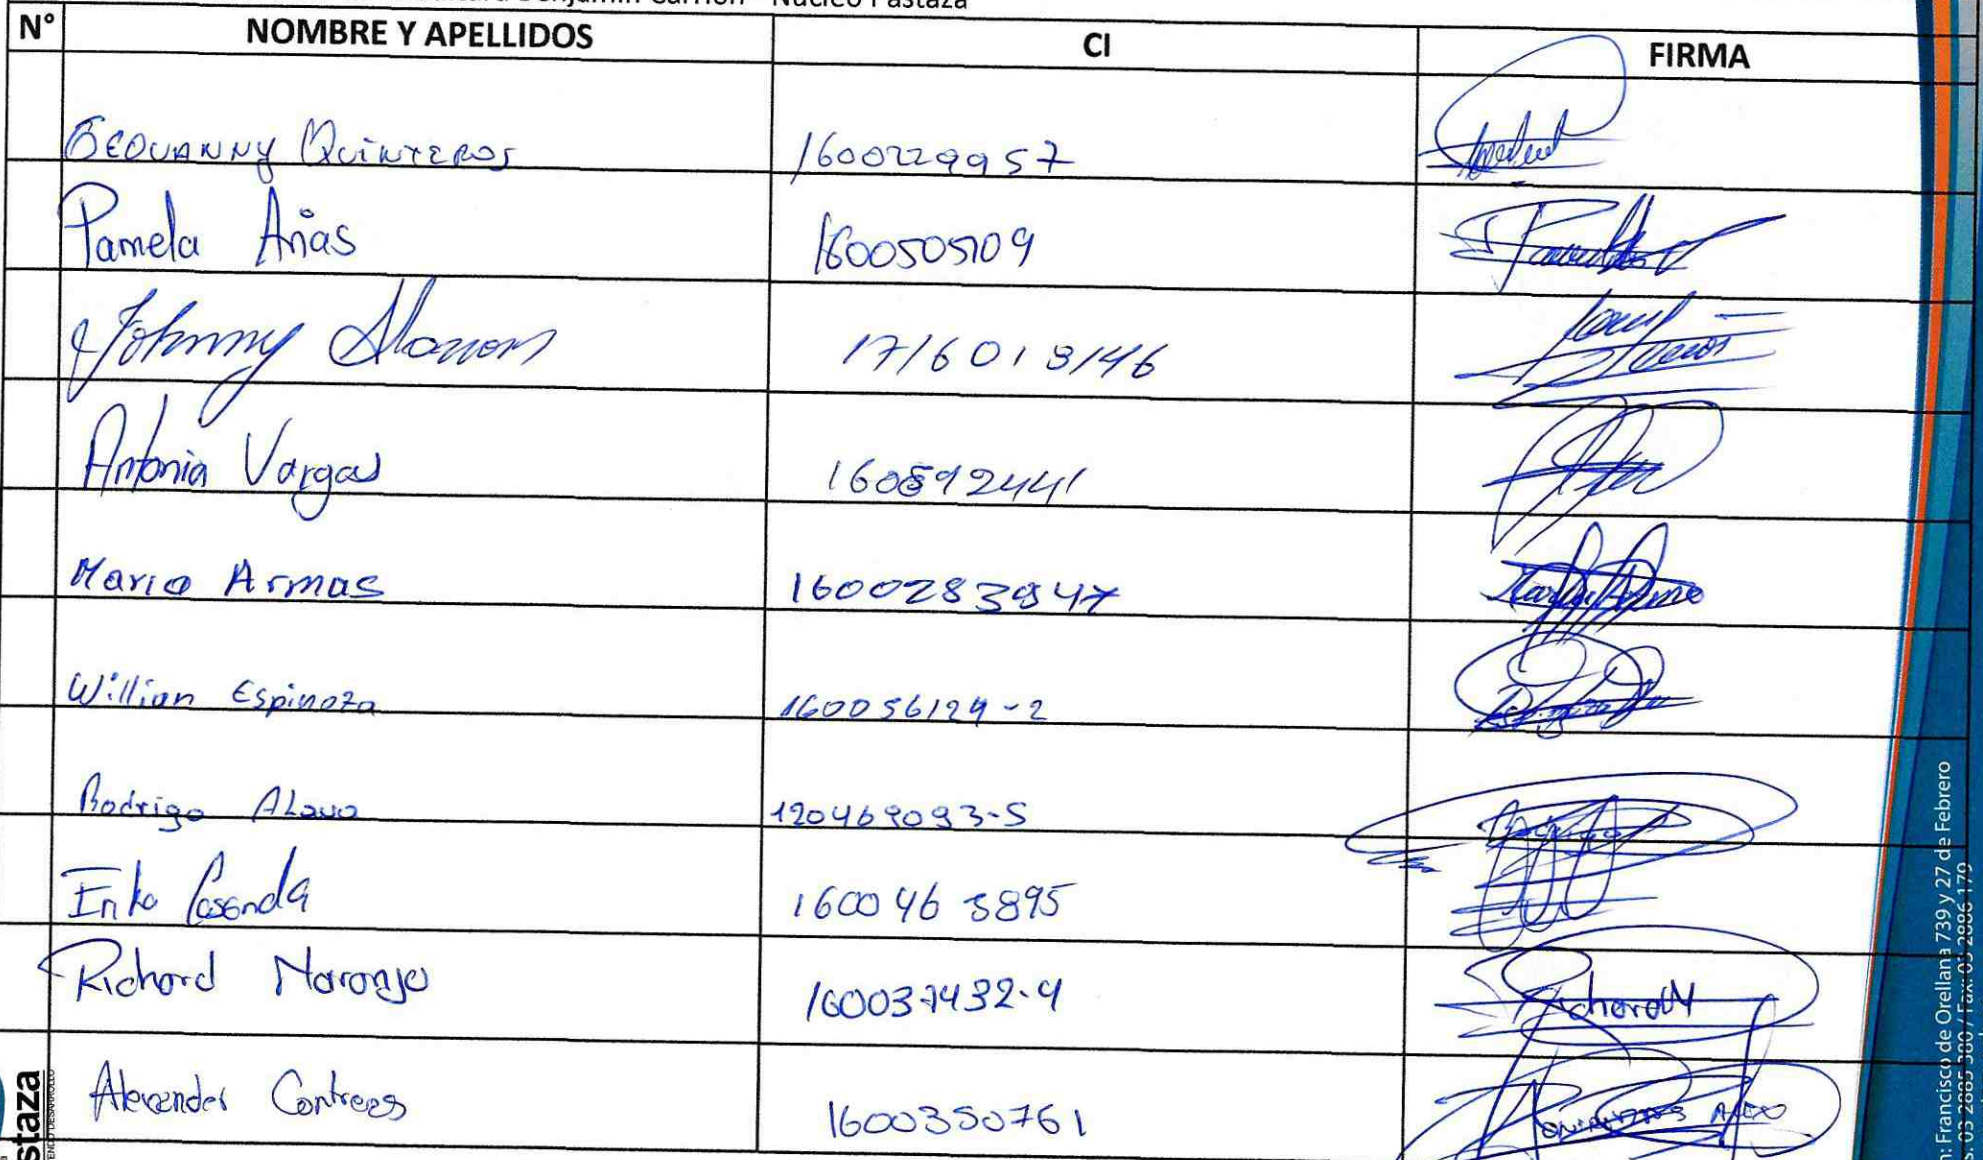 Benjamín Carrión - Núcleo Pastaza
N° NOMBRE Y APELLIDOS CI FIRMA
GEOVANNY QUINTEROS 1600229957
Pamela Arias 1600505109
Johnny 1716018146
Antonia Vargas
Mario Armas 1600283947
Willian Espinoza 160056129-2
Rodrigo ALava 120469093-5
160046 3895
Richard Naranjo 160037432-4 RichardN
Alexander Contreras 1600350761
staza
n: Francisco de Orellana 739 y 27 de Febrero
s. 03 2885 380 / Fax: 03 2886 179